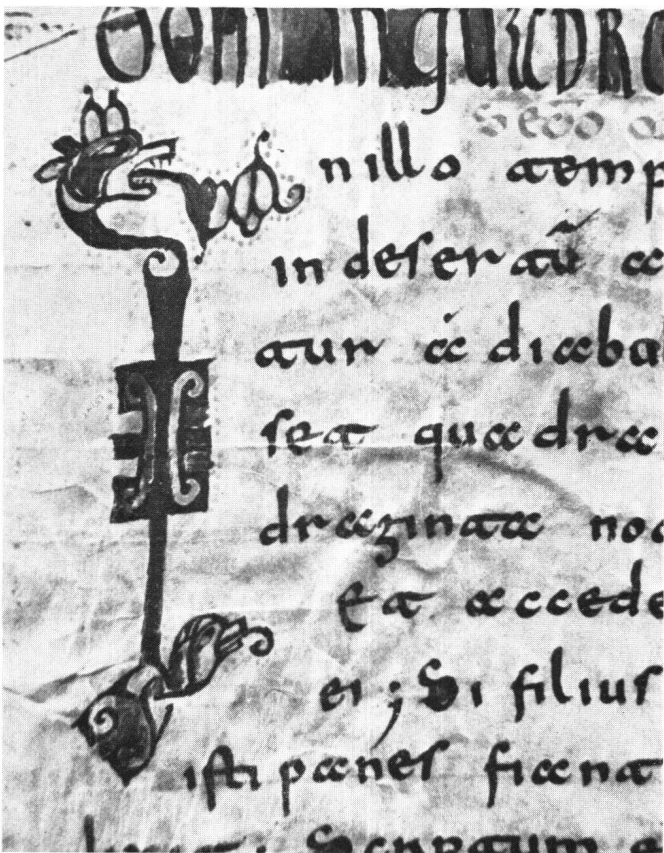 DOM IN QUADR
In illo temp
in desertū a
tur a diabo
set quadra
draginta no
Et accede
ei ; Si filius
isti panes fiant
Scriptum